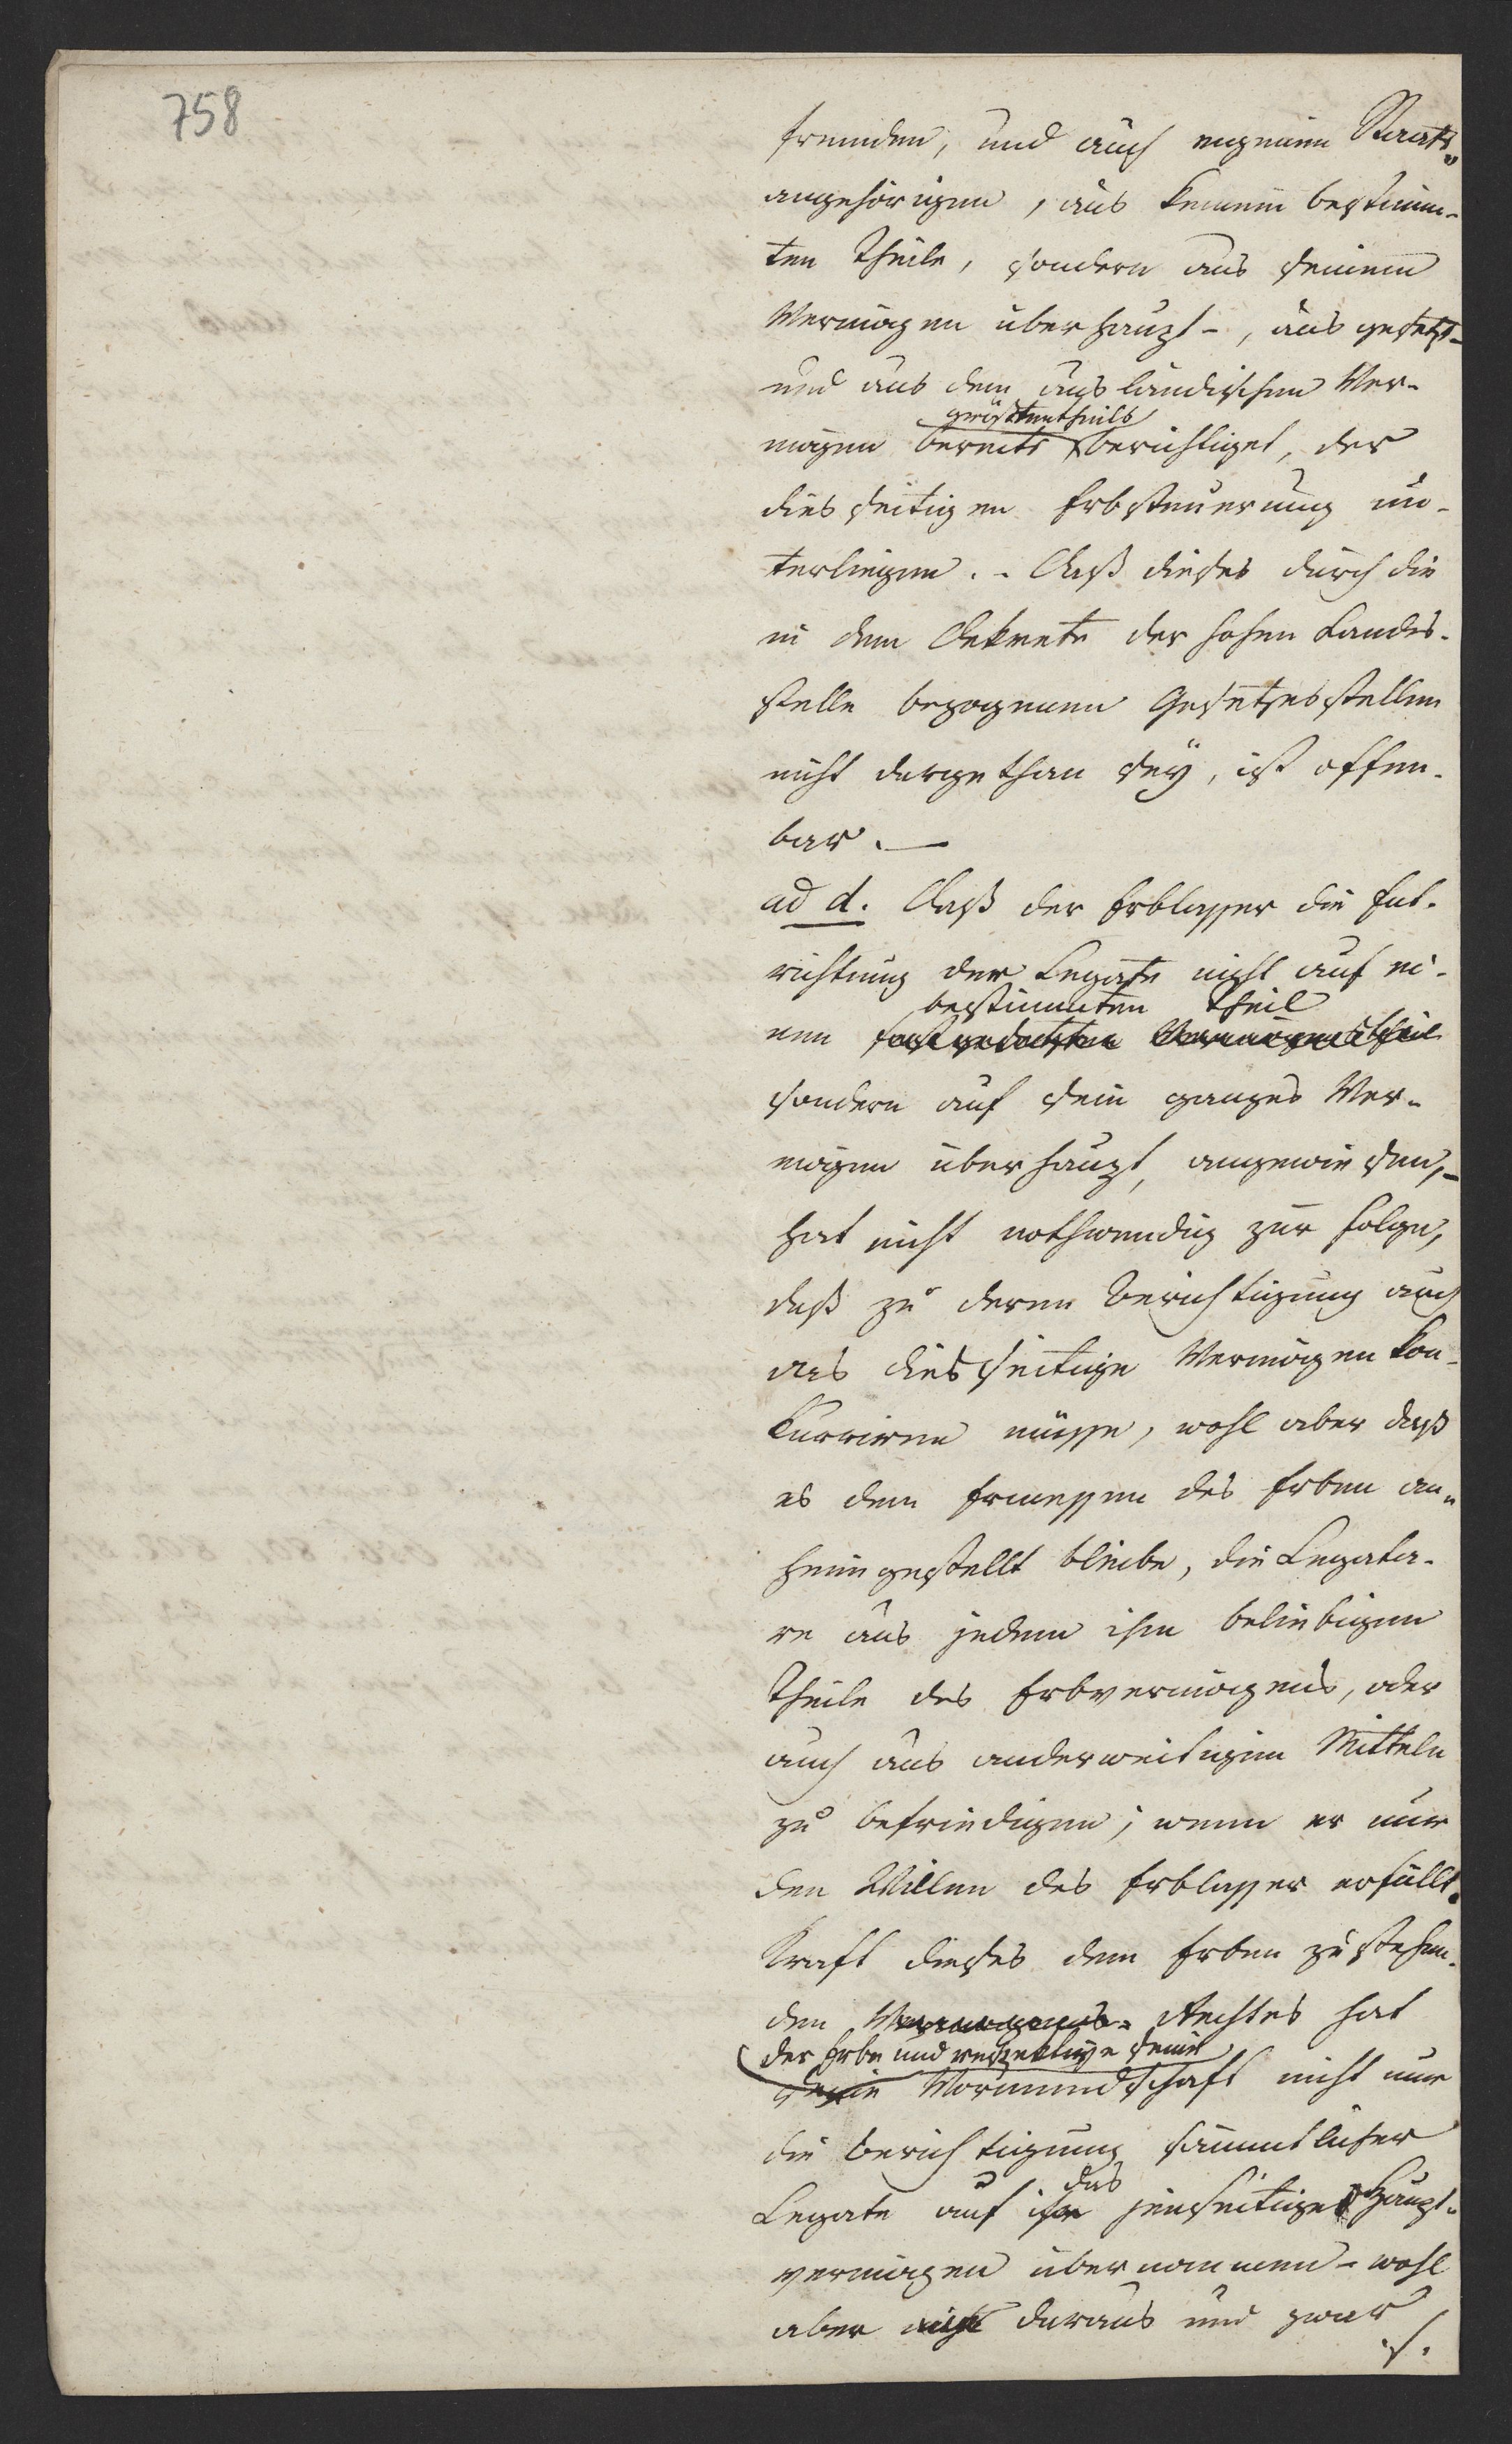 758
fremden, und auch eigenen Staats„
angehörigen, aus keinem bestimm-
ten Theile, sondern aus seinem
Vermögen überhaupt -, ausgesetzt-
und aus dem ausländischen Ver-
größtentheils
mögen bereits berichtiget, der
diesseitigen Erbsteuerung un-
terliegen. - Daß dieses durch die
in dem Dekrete der hohen Landes-
stelle bezogenen Gesetzesstellen
nicht dargethan seÿ, ist offen-
bar. —
ad d. Daß der Erblasser die Ent-
richtung der Legate nicht auf ei-
bestimmten Theil
nen
sondern auf sein ganzes Ver-
mögen überhaupt, angewiesen, -
hat nicht nothwendig zur Folge,
daß zu deren Berichtigung auch
das diesseitige Vermögen kon-
kurriren müsse, wohl aber daß
es dem Ermessen des Erben an„
heimgestellt bleibe, die Legata-
re aus jedem ihm beliebigen
Theile des Erbvermögens, oder
auch aus anderweitigen Mitteln
zu befriedigen; wenn er nur
den Willen des Erblasser erfüllt.
Kraft dieses dem Erben zustehen-
den Rechtes hat
der Erbe und respektive seine
seine Vormundschaft nicht nur
die Berichtigung sämmtlicher
das
Legate auf ihr jenseitiges Haupt-
vermögen übernommen - wohl
aber daraus und zwar
./.